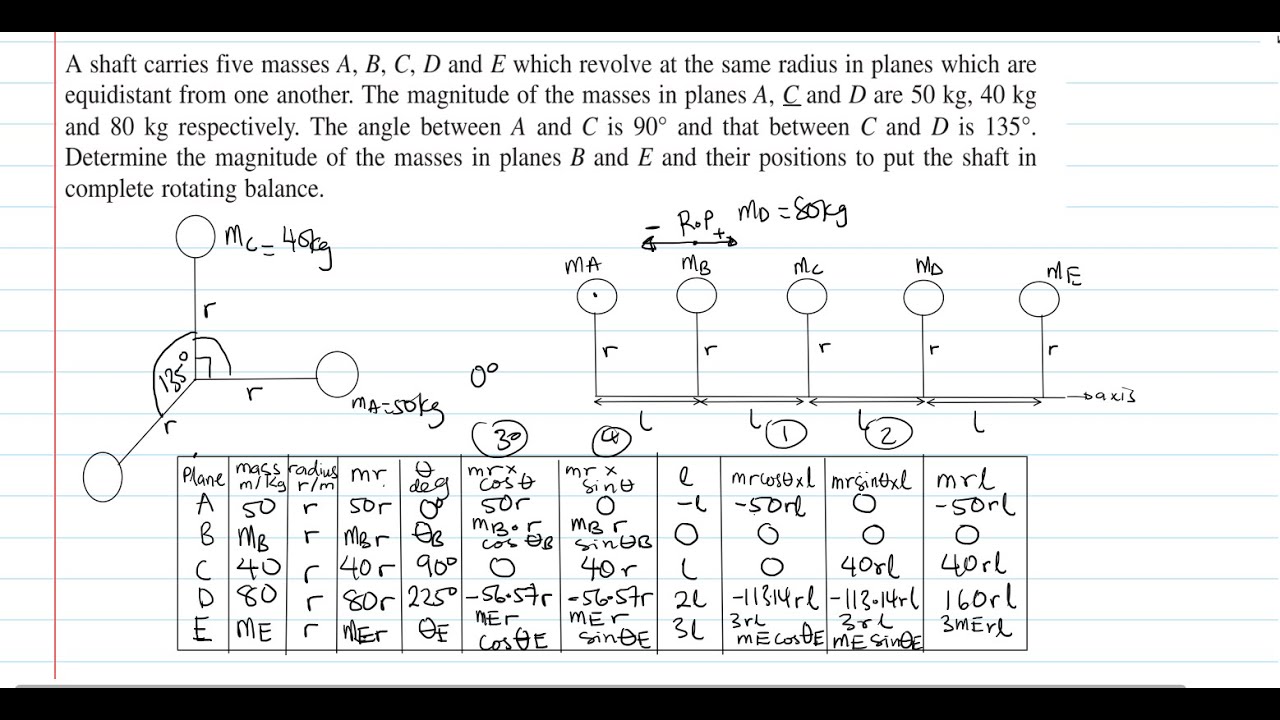 A shaft carries five masses A, B, C, D and E which revolve at the same radius in planes which are
equidistant from one another. The magnitude of the masses in planes A, C and D are 50 kg, 40 kg
and 80 kg respectively. The angle between A and C is 90° and that between C and D is 135°.
Determine the magnitude of the masses in planes B and E and their positions to put the shaft in
complete rotating balance.
mC = 40kg
r
135°
r
mA=50kg
r
0°
- R.P + mD = 80kg
mA mB mC mD mE
r r r r r
→axis
l l l l
① ②
③ ④
Plane mass m/kg radius r/m mr θ deg mr x cosθ mr x sinθ l mrcosθxl mrsinθxl mrl
A 50 r 50r 0° 50r 0 -l -50rl 0 -50rl
B mB r mBr θB mB.r cosθB mBr sinθB 0 0 0 0
C 40 r 40r 90° 0 40r l 0 40rl 40rl
D 80 r 80r 225° -56.57r -56.57r 2l -113.14rl -113.14rl 160rl
E mE r mEr θE mEr cosθE mEr sinθE 3l 3rl mEcosθE 3rl mEsinθE 3mErl